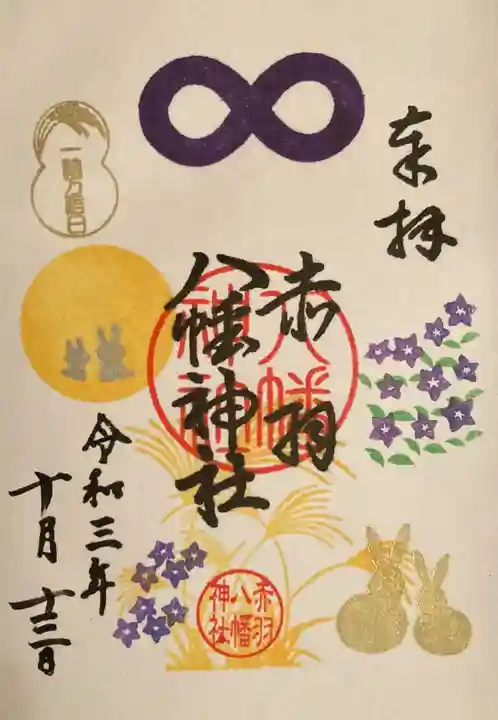 奉拝
赤羽
八幡神社
八幡
神社
令和三年
十月十三日
一粒万倍日
赤羽
八幡
神社